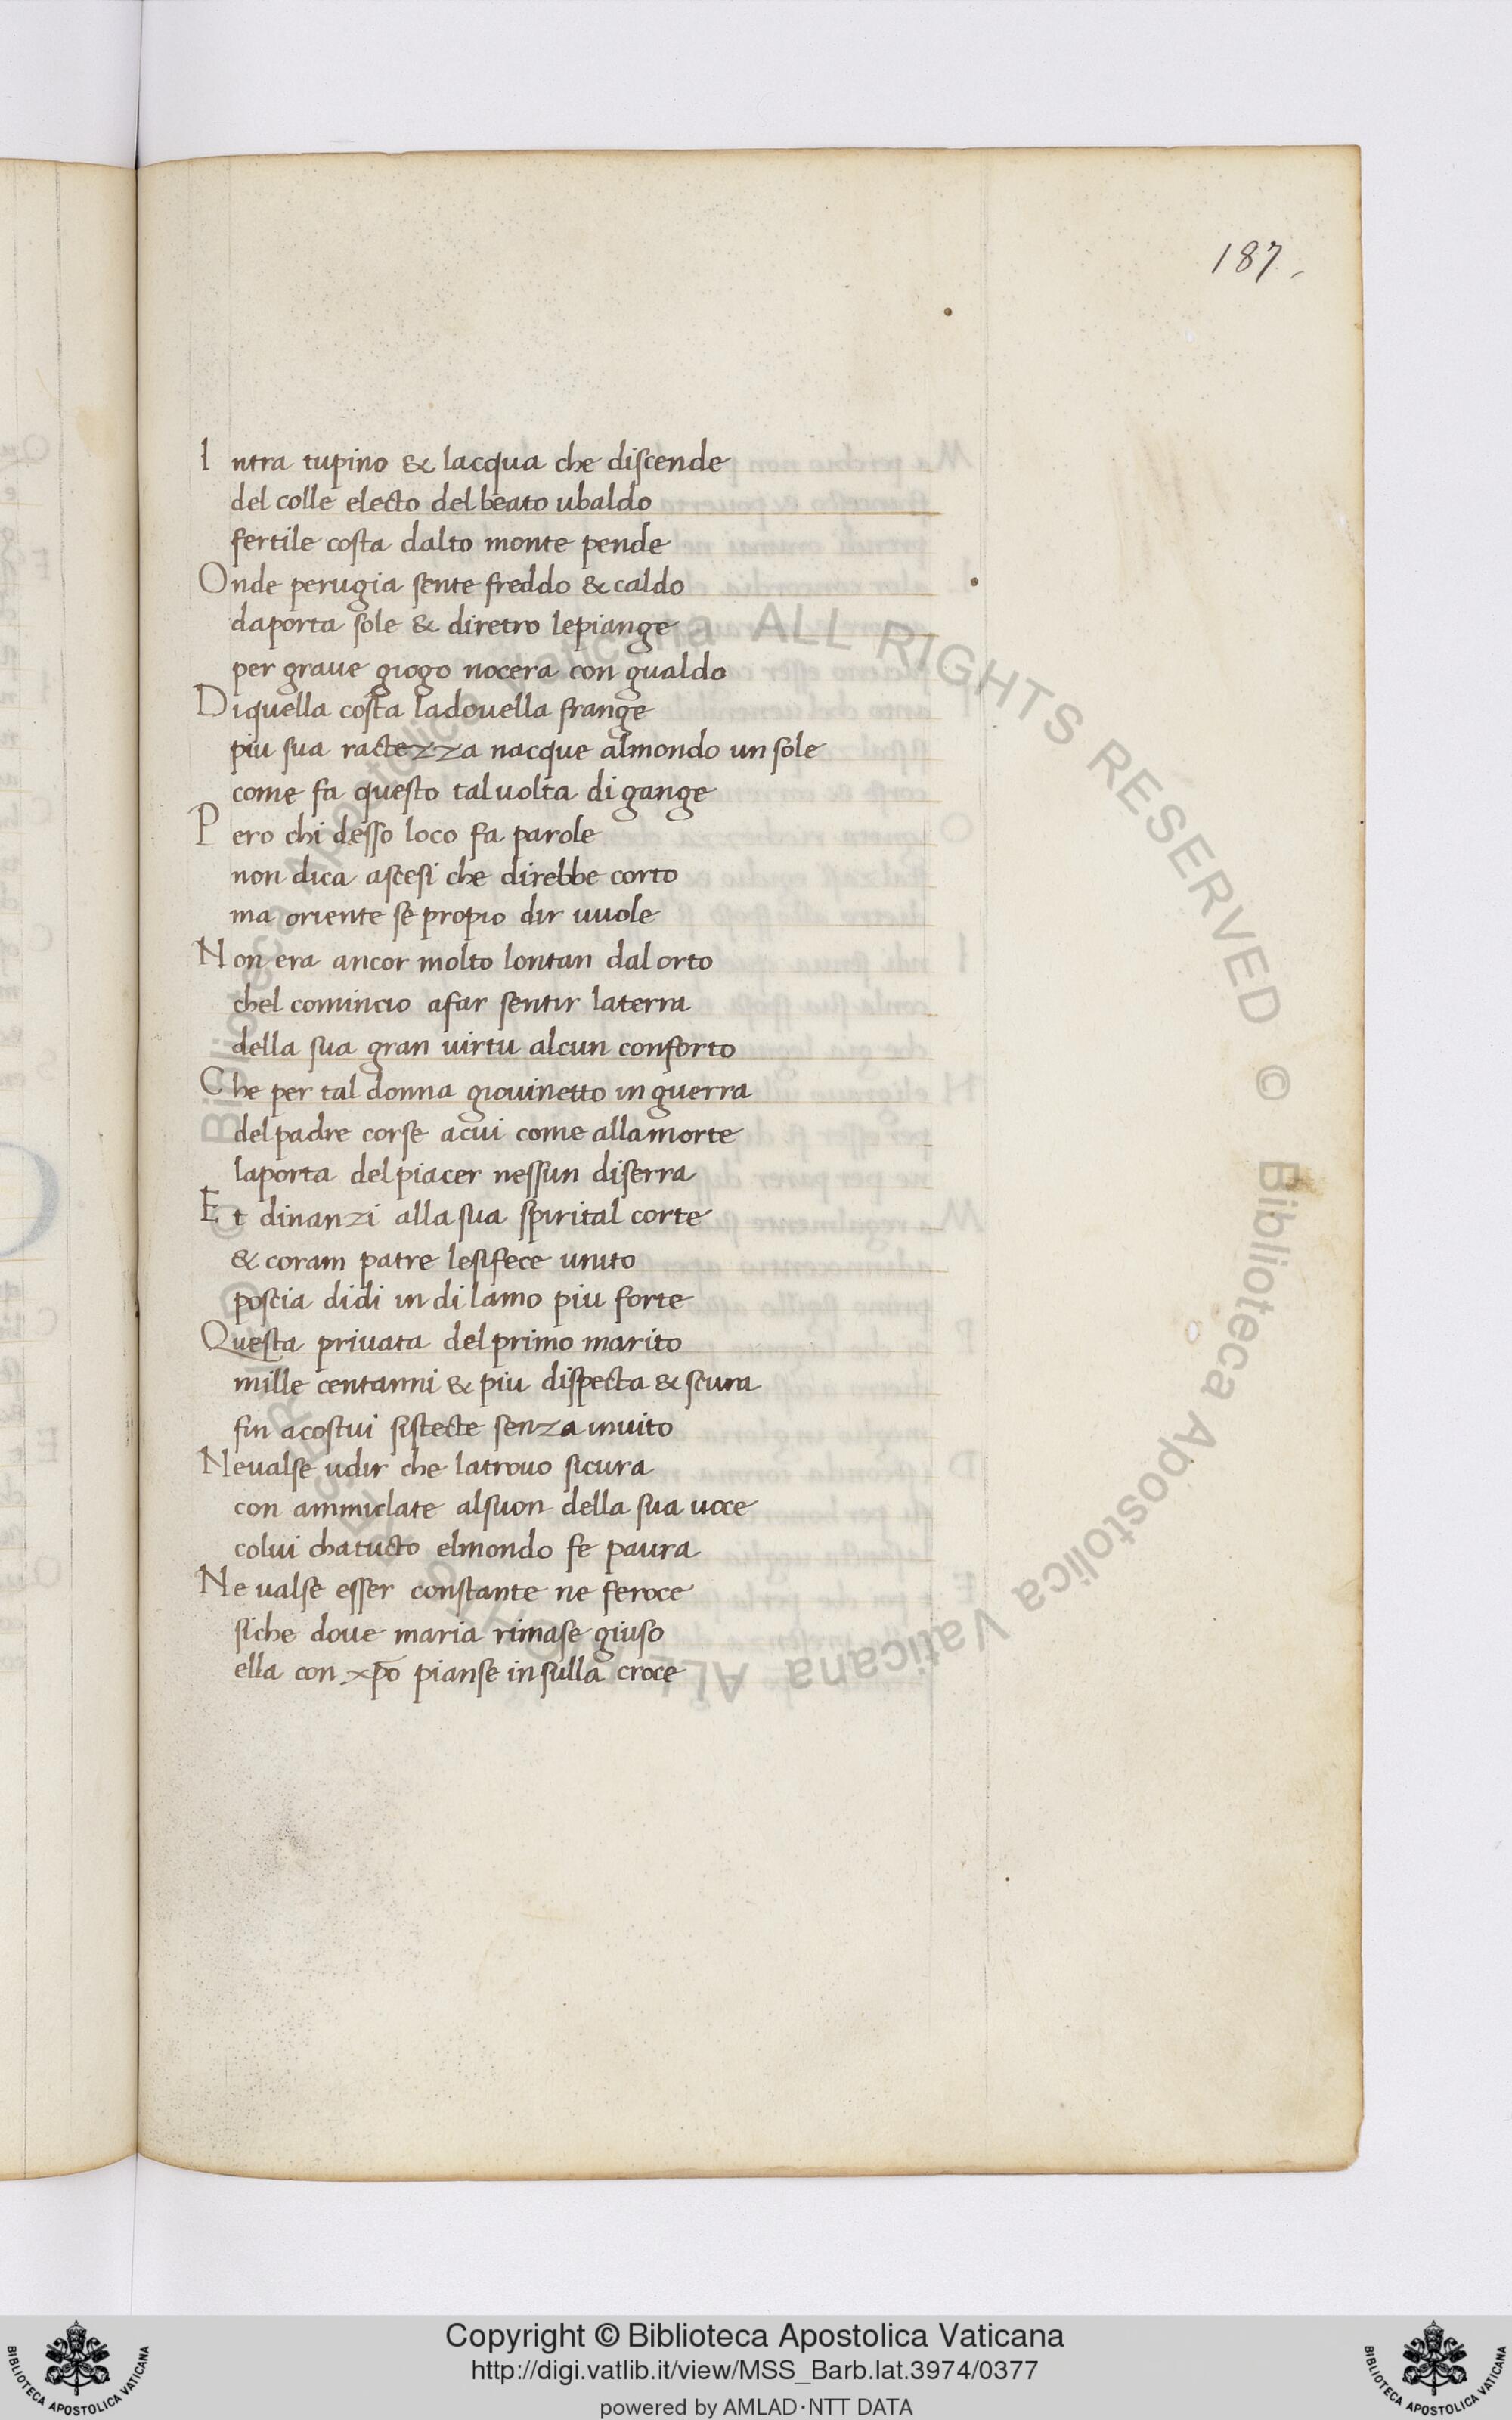 187.
Intra tupino & lacqua che discende
del colle electo del beato ubaldo
fertile costa dalto monte pende
Onde perugia sente freddo & caldo
daporta sole & diretro lepiange
per graue giogo nocera con gualdo
Diquella costa ladouella frange
piu sua ractezza nacque almondo un sole
come fa questo taluolta di gange
Pero chi desso loco fa parole
non dica ascesi che direbbe corto
ma oriente se propio dir uuole
Non era ancor molto lontan dal orto
chel comincio afar sentir laterra
della sua gran uirtu alcun conforto
Che per tal donna giouinetto in guerra
del padre corse acui come alla morte
laporta del piacer nessun diserra
Et dinanzi alla sua spirital corte
& coram patre lesifece unito
poscia didi in di lamo piu forte
Questa priuata del primo marito
mille centanni & piu dispecta & scura
fin acostui sistecte senza inuito
Neualse udir che latrouo sicura
con ammiclate alsuon della sua uoce
colui chatucto elmondo fe paura
Ne ualse esser constante ne feroce
siche doue maria rimase giuso
ella con xp̄o pianse in sulla croce
Copyright © Biblioteca Apostolica Vaticana
http://digi.vatlib.it/view/MSS_Barb.lat.3974/0377
powered by AMLAD·NTT DATA
BIBLIOTECA APOSTOLICA VATICANA
BIBLIOTECA APOSTOLICA VATICANA
© Biblioteca Apostolica Vaticana ALL RIGHTS RESERVED © Biblioteca Apostolica Vaticana ALL RIGHTS RESERVED